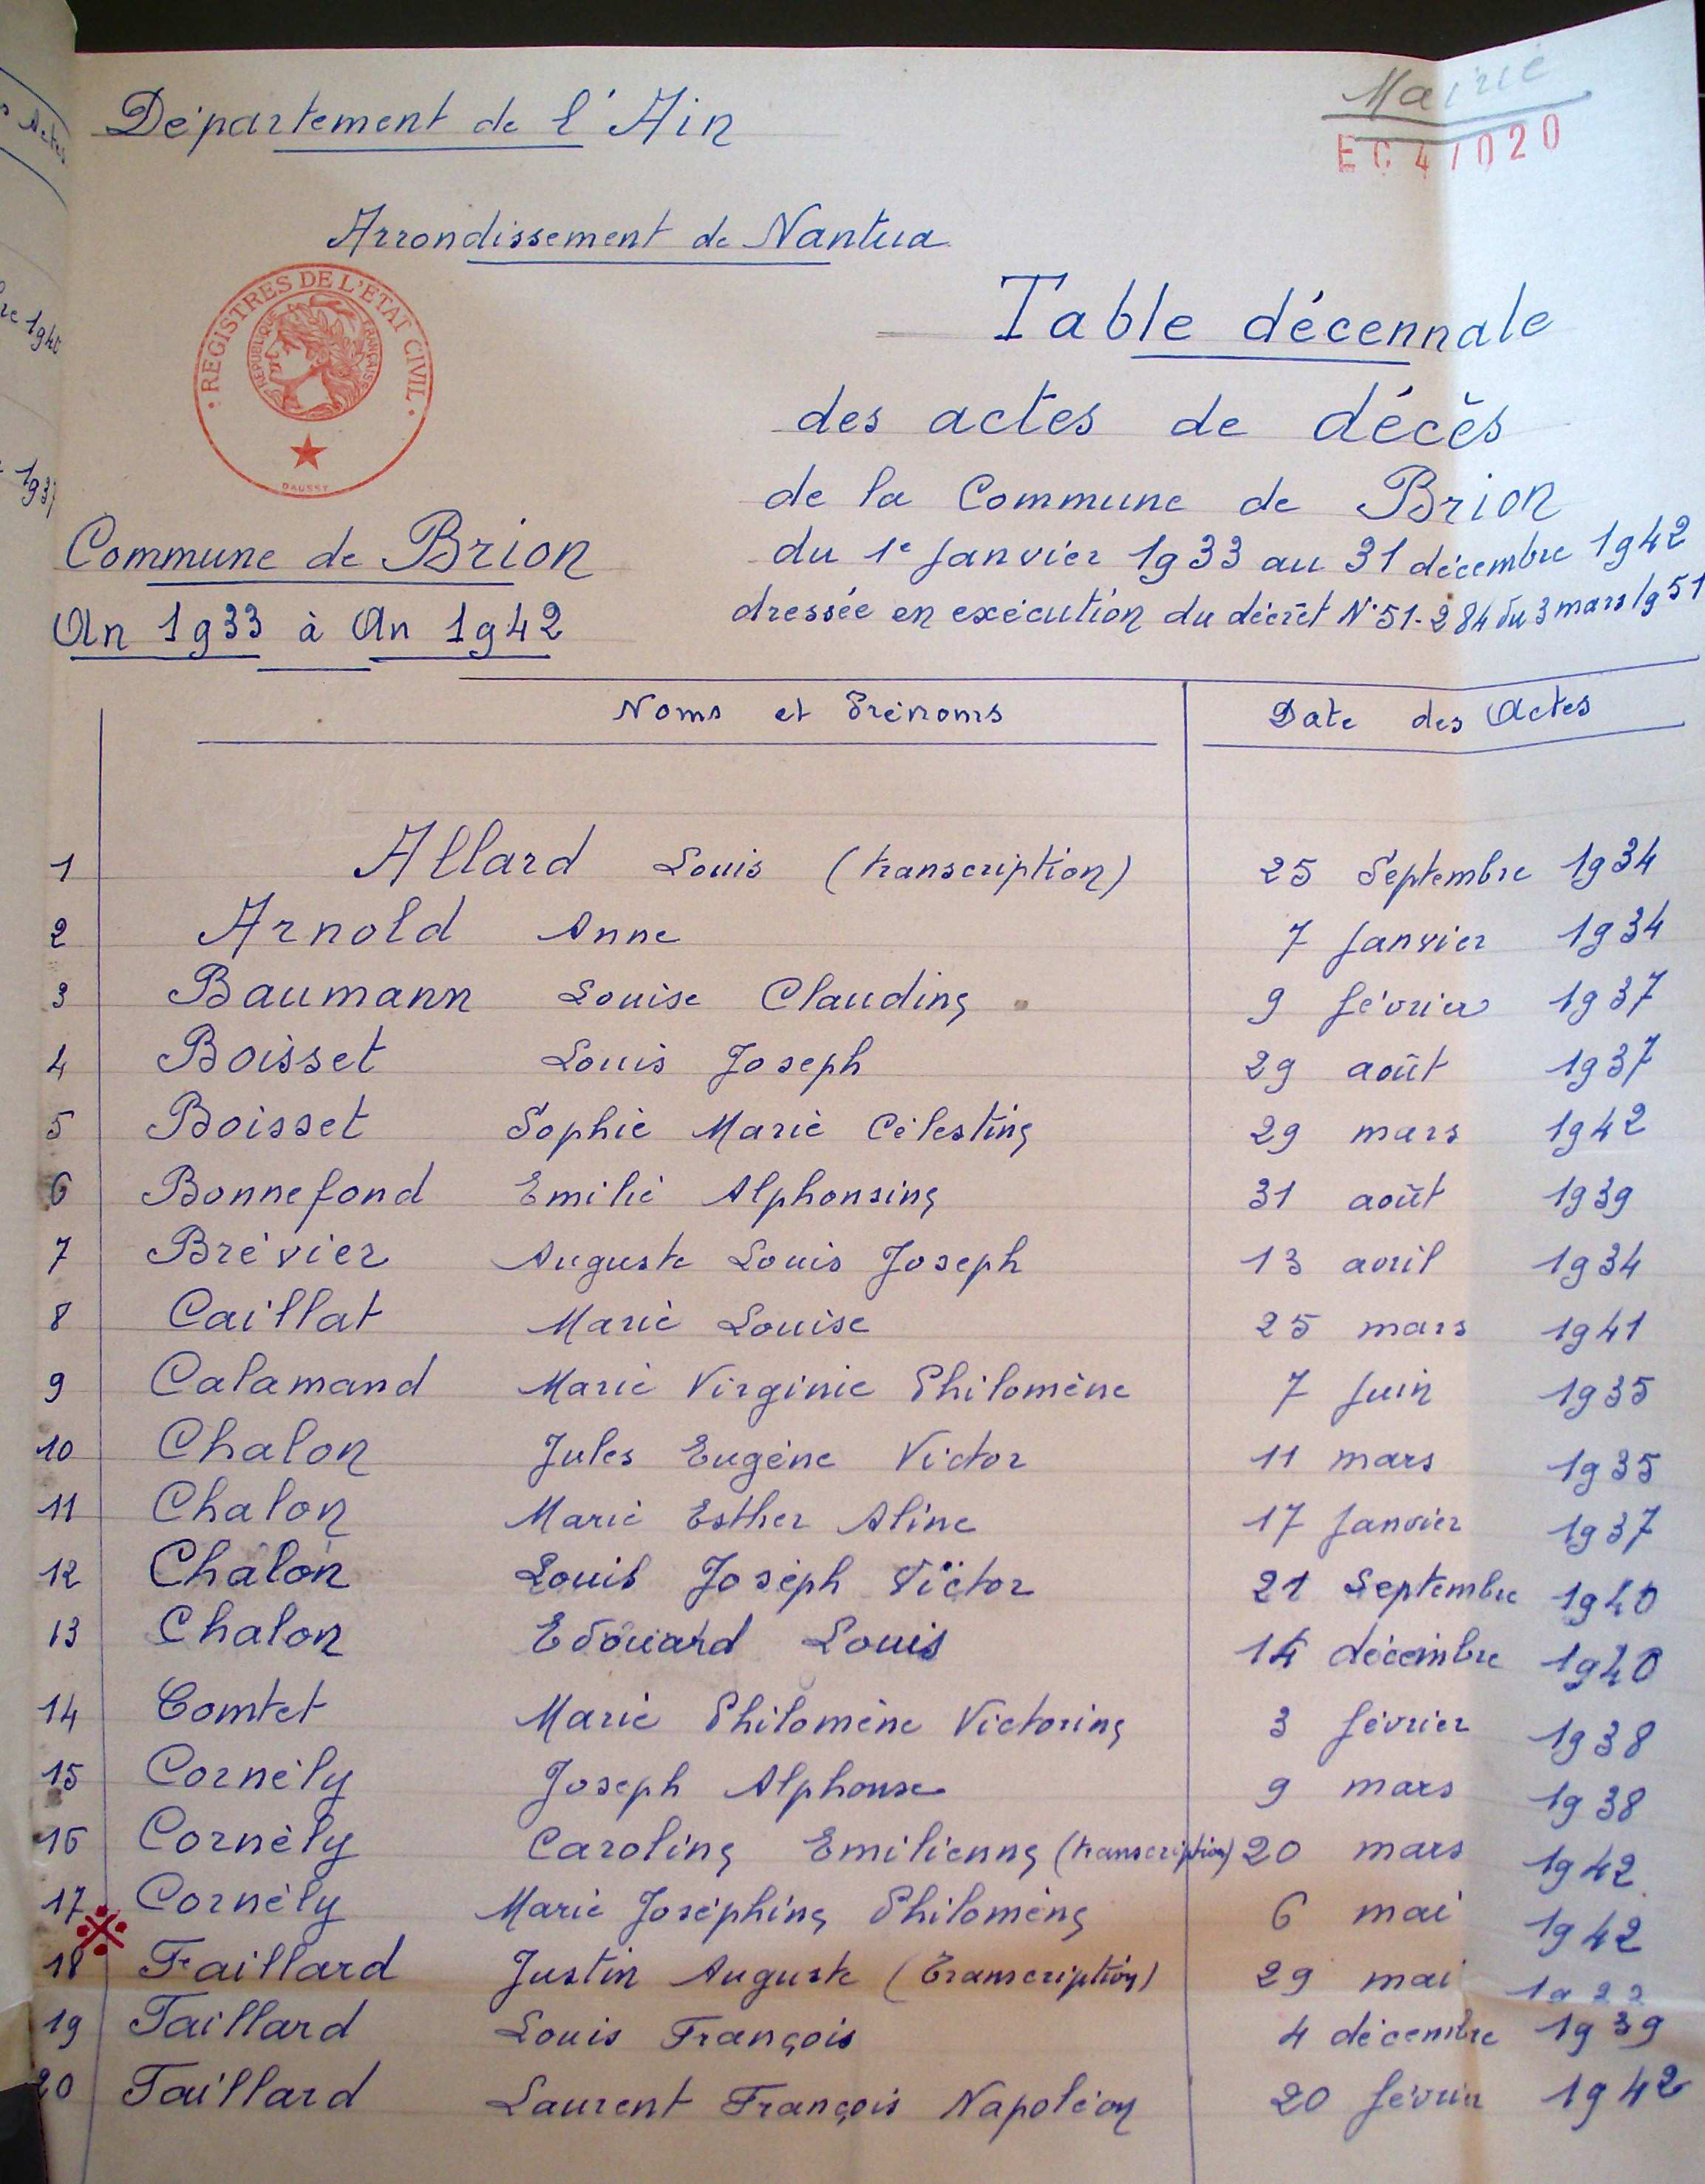 Mairie
Département de l'Ain
EC 4/020
Arrondissement de Nantua
REGISTRES DE L'ÉTAT CIVIL
RÉPUBLIQUE FRANÇAISE
DAUSSY
Table décennale
des actes de décès
de la Commune de Brion
Commune de Brion
du 1e Janvier 1933 au 31 décembre 1942
An 1933 à An 1942
dressée en exécution du décret N°51-284 du 3 mars 1951
Noms et Prénoms Date des Actes
1 Allard Louis (transcription) 25 Septembre 1934
2 Arnold Anne 7 Janvier 1934
3 Baumann Louise Claudine 9 février 1937
4 Boisset Louis Joseph 29 août 1937
5 Boisset Sophie Marie Célestine 29 mars 1942
6 Bonnefond Emilie Alphonsine 31 août 1939
7 Brévier Auguste Louis Joseph 13 avril 1934
8 Caillat Marie Louise 25 mars 1941
9 Calamand Marie Virginie Philomène 7 Juin 1935
10 Chalon Jules Eugène Victor 11 mars 1935
11 Chalon Marie Esther Aline 17 Janvier 1937
12 Chalon Louis Joseph Victor 21 Septembre 1940
13 Chalon Edouard Louis 14 décembre 1940
14 Comtet Marie Philomène Victorine 3 février 1938
15 Cornély Joseph Alphonse 9 mars 1938
16 Cornély Caroline Emilienne (transcription) 20 mars 1942
17 Cornély Marie Joséphine Philomène 6 mai 1942
18 Faillard Justin Auguste (Transcription) 29 mai
19 Taillard Louis François 4 décembre 1939
20 Taillard Laurent François Napoléon 20 février 1942